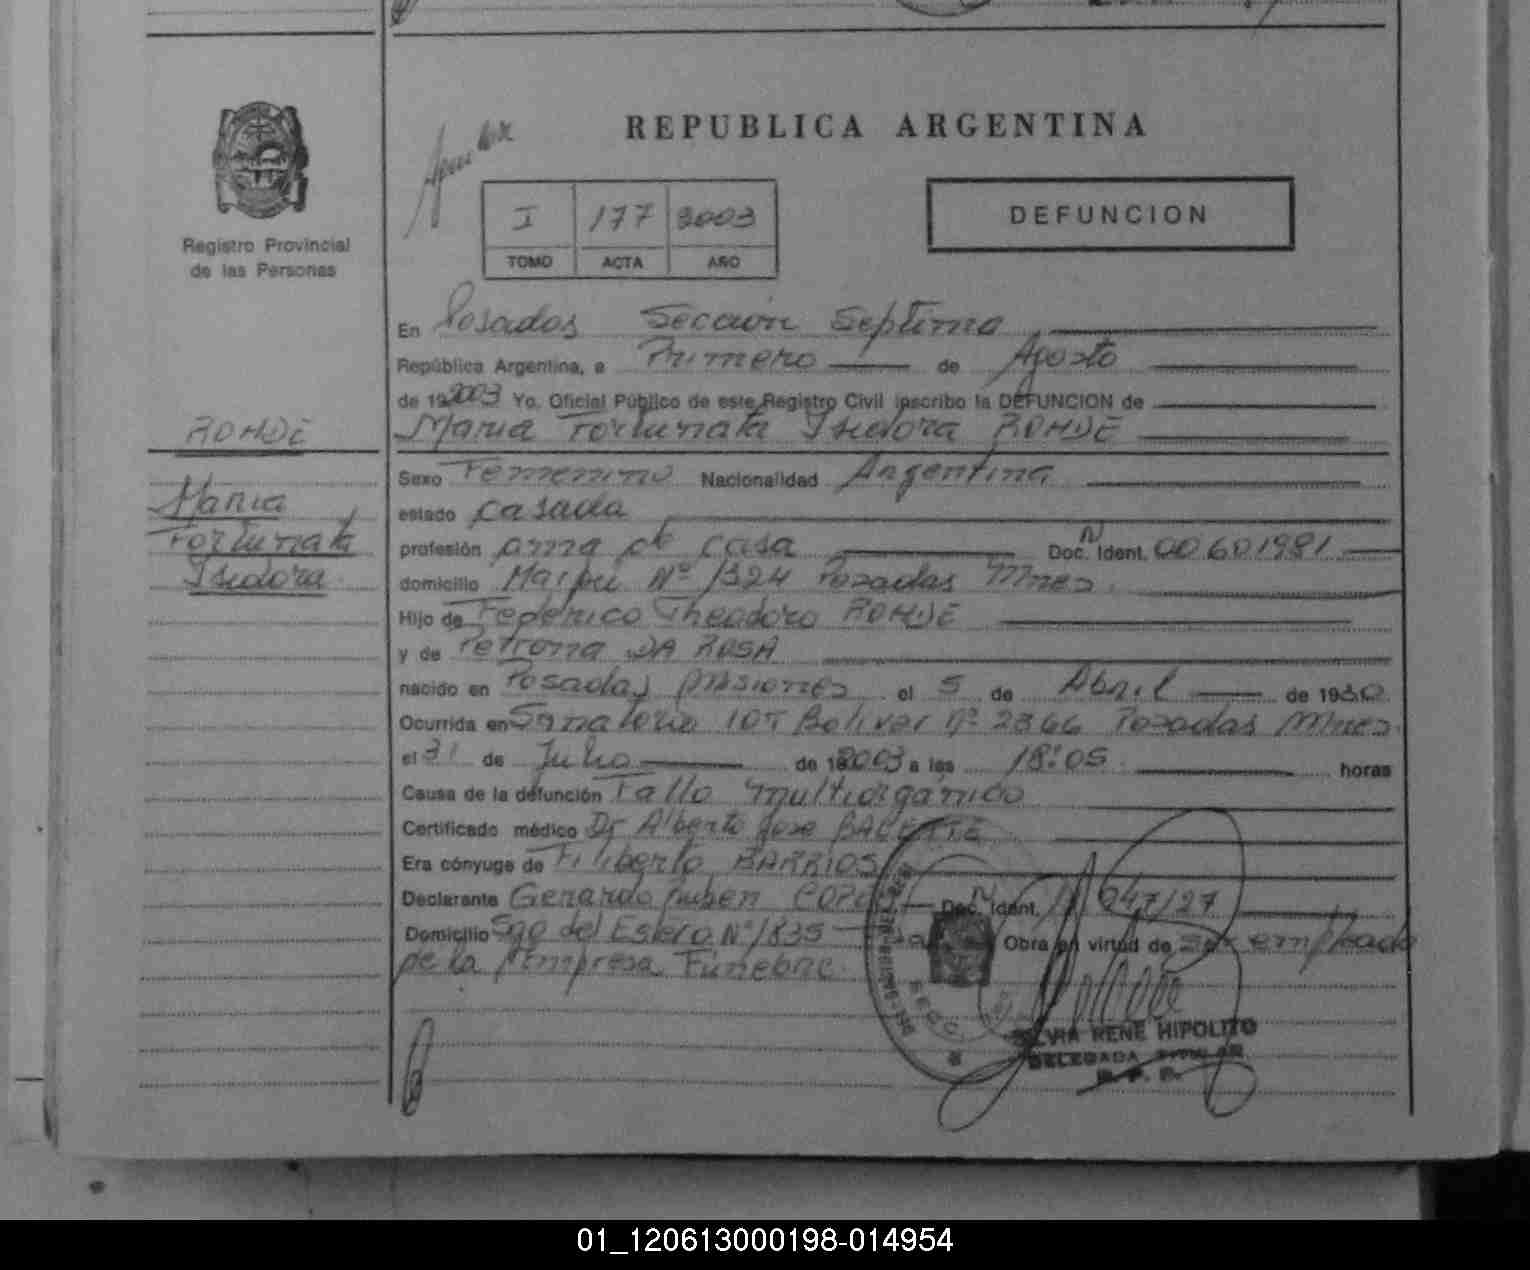 REPUBLICA ARGENTINA
Registro Provincial
de las Personas
I 177 2003
TOMO ACTA AÑO
DEFUNCION
En Posadas Seccion Septima
República Argentina, a Primero de Agosto
de 192003 Yo, Oficial Público de este Registro Civil inscribo la DEFUNCION de
Maria Fortunata Isidora ROHDE
ROHDE
Maria
Fortunata
Isidora
Sexo Femenino Nacionalidad Argentina
estado casada
profesión ama de casa Doc. Ident. 00.601981
domicilio Maipu Nº 1324 Posadas Mnes.
Hijo de Federico Theodoro ROHDE
y de Petrona DA ROSA
nacido en Posadas Misiones el 5 de Abril de 1930
Ocurrida en Sanatorio IOT Bolivar Nº 2366 Posadas Mnes.
el 31 de Julio de 192003 a las 18:05 horas
Causa de la defunción Fallo multiorganico
Certificado médico Dr Alberto Jose
Era cónyuge de Filiberto BARRIOS
Declarante Gerardo Ruben Doc. Ident.
Domicilio Sgo del Estero Nº 1835 Obra en virtud de ser empleado
de la Empresa Funebre.
SILVIA RENE HIPOLITO
DELEGADA TITULAR
R. P. P.
01_120613000198-014954